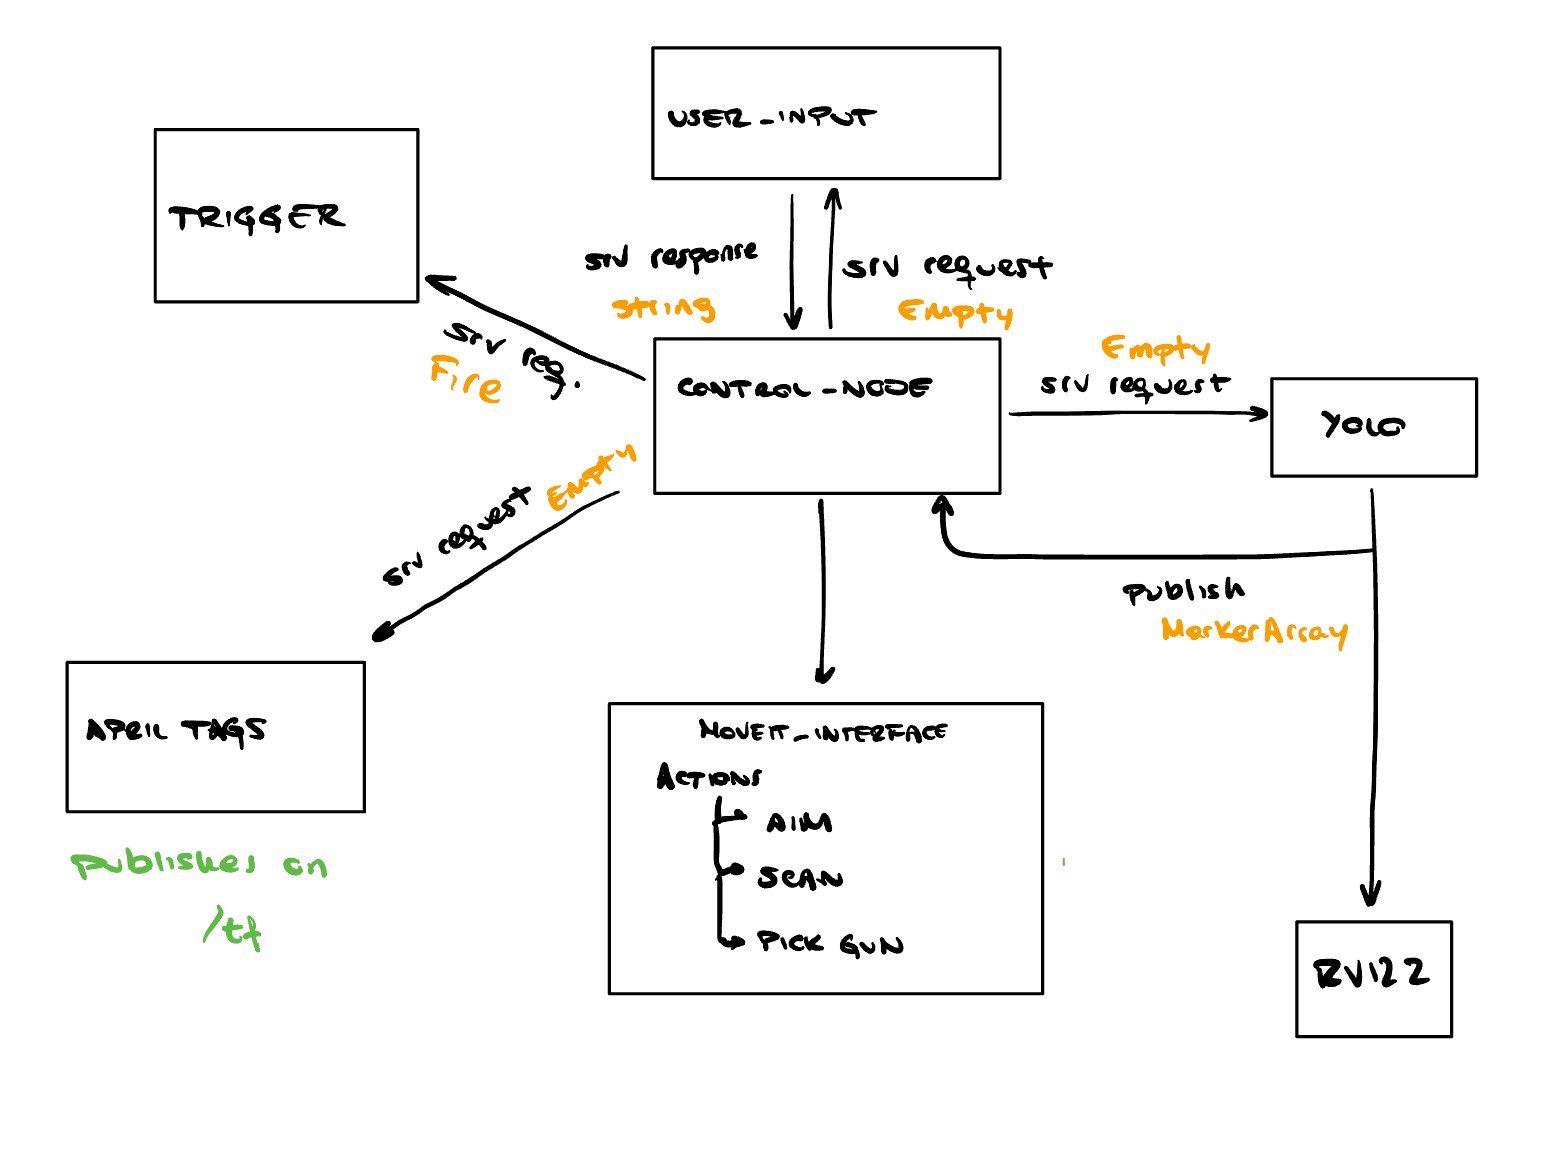 USER_INPUT
TRIGGER
srv response
string
srv request
Empty
srv req.
Fire
CONTROL_NODE
Empty
srv request
YOLO
srv request Empty
publish
MarkerArray
APRIL TAGS
publishes on
/tf
MOVEIT_INTERFACE
ACTIONS
AIM
SCAN
PICK GUN
RVIZZ